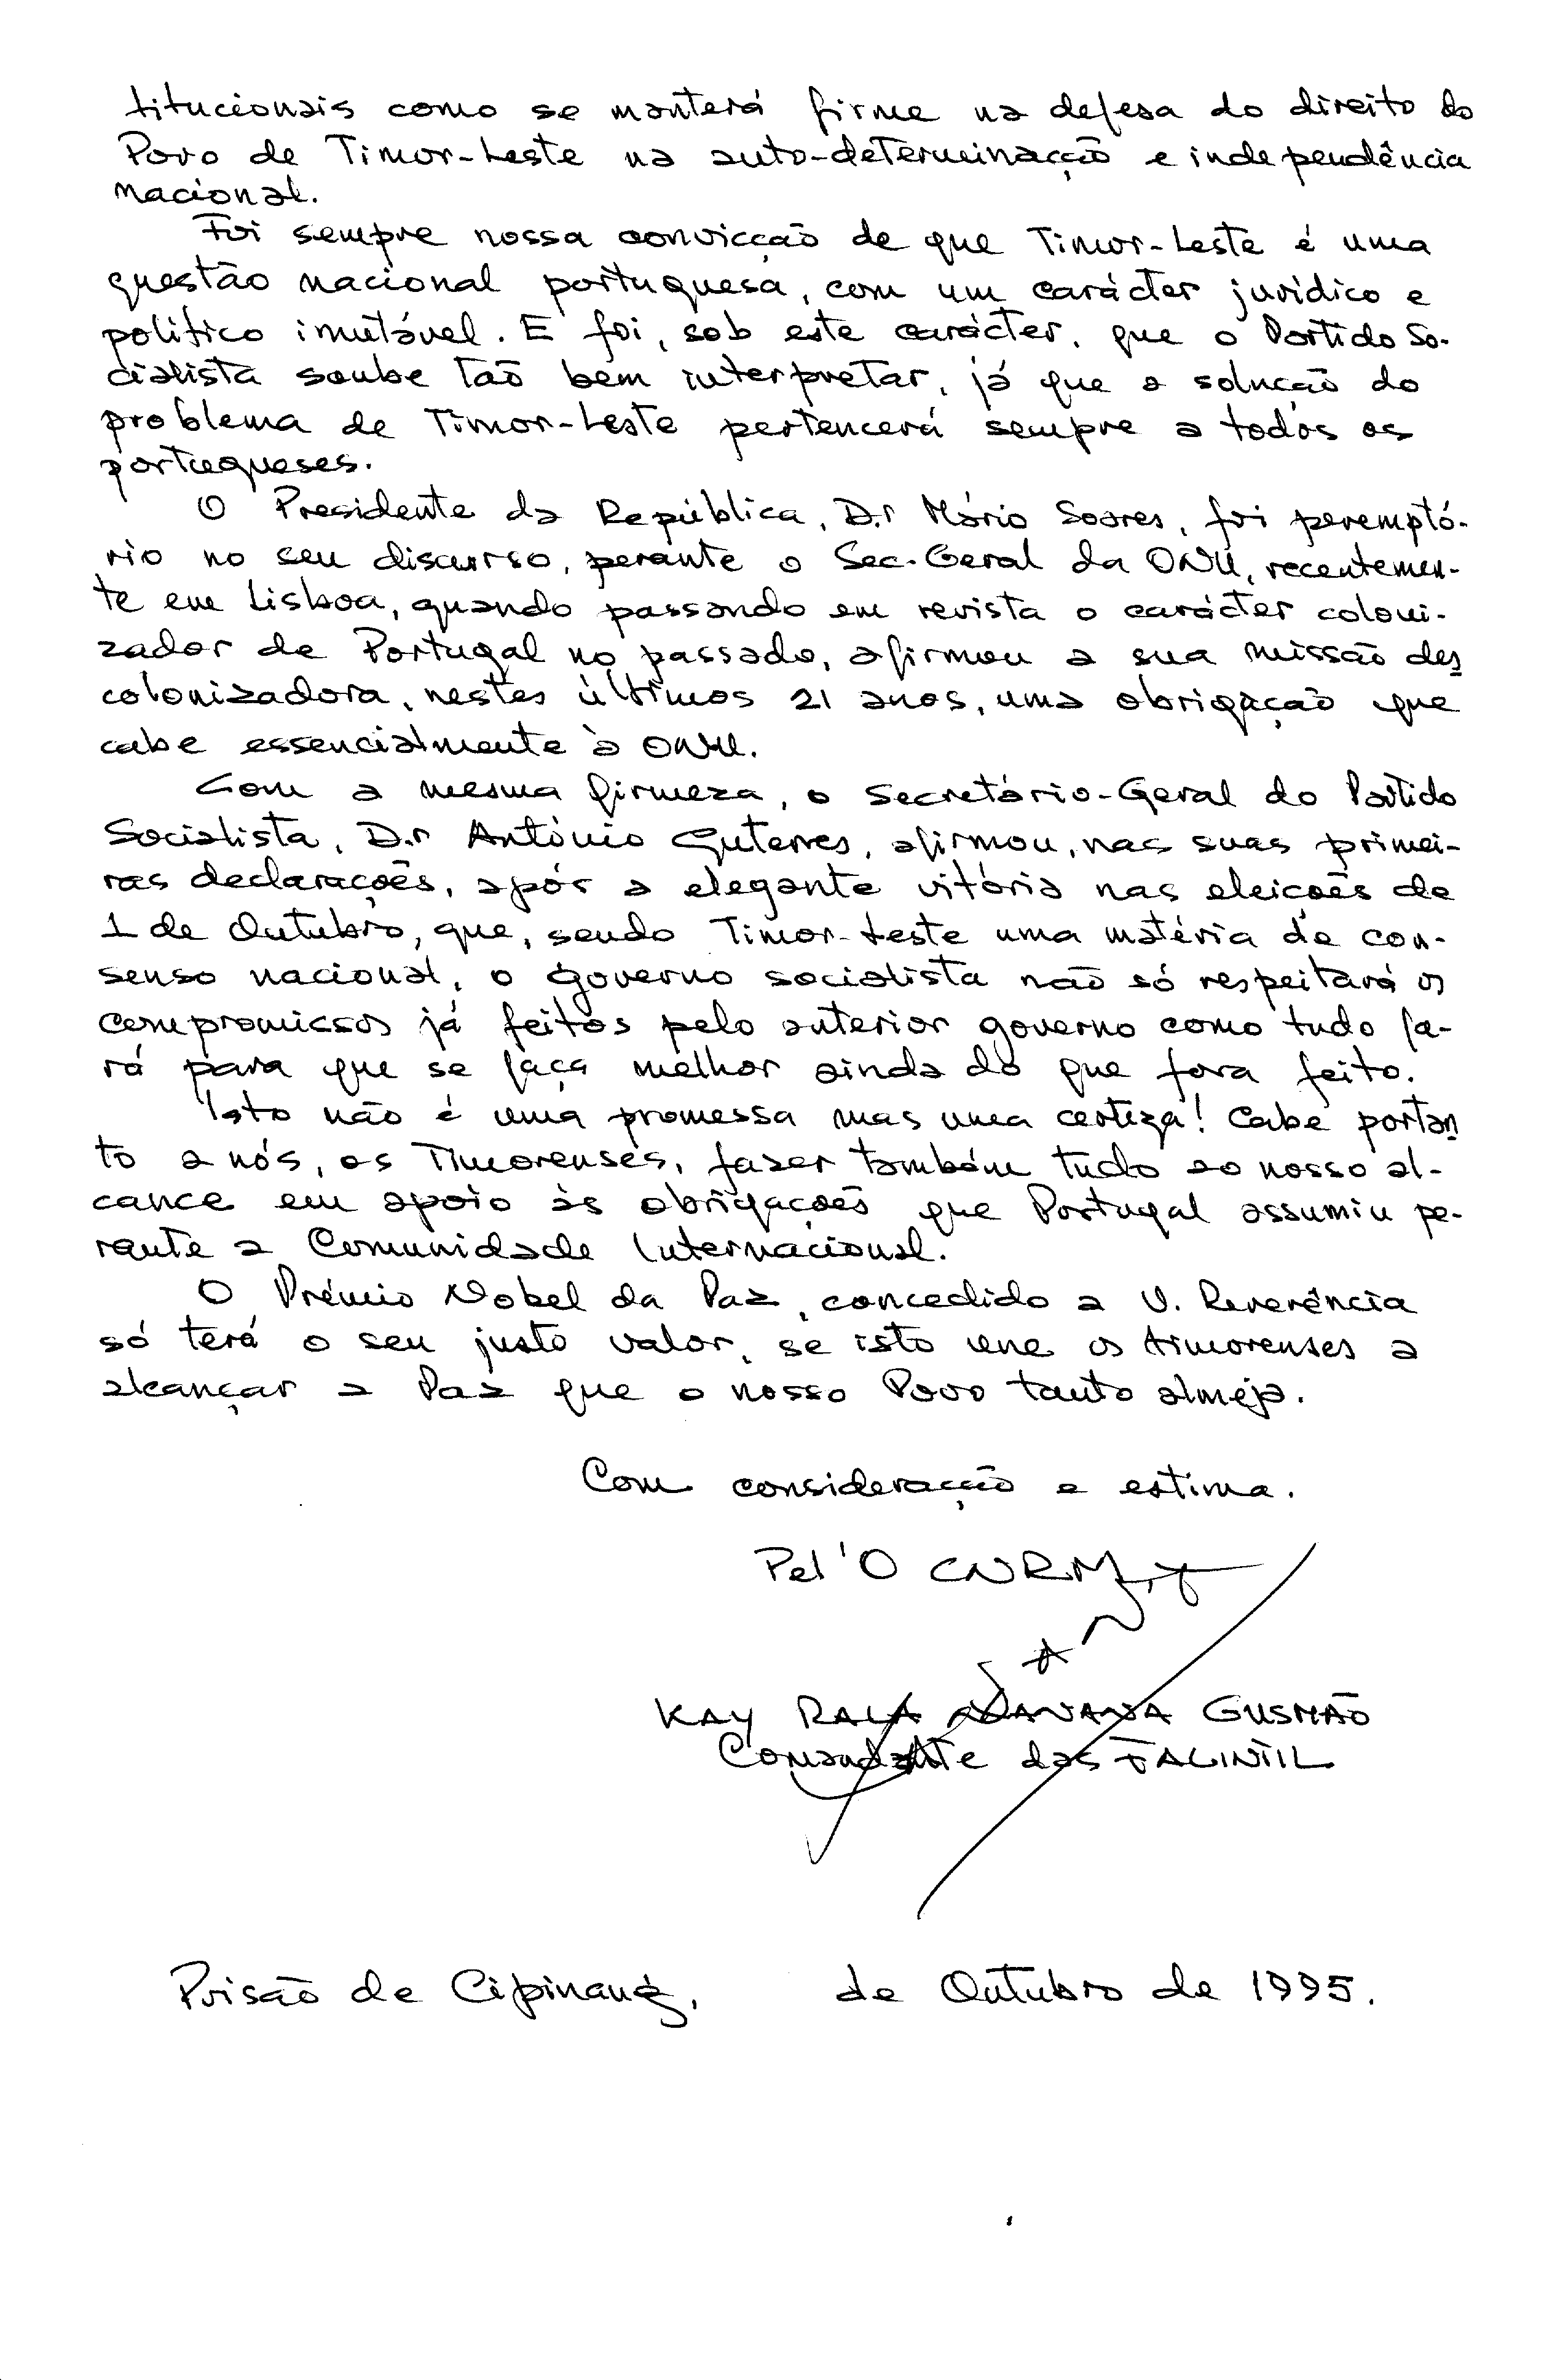 titucionais como se manterá firme na defesa do direito do
Povo de Timor-Leste na auto-determinacção e independência
nacional.
Foi sempre nossa convicção de que Timor-Leste é uma
questão nacional portuguesa, com um carácter jurídico e
político imutável. E foi, sob este carácter, que o Partido So-
cialista soube tão bem interpretar, já que a solucção do
problema de Timor-Leste pertencerá sempre a todos os
portugueses.
O Presidente da República, D.r Mário Soares, foi peremptó-
rio no seu discurso, perante o Sec.-Geral da ONU, recentemen-
te em Lisboa, quando passando em revista o carácter coloni-
zador de Portugal no passado, afirmou a sua missão des
colonizadora, nestes últimos 21 anos, uma obrigação que
cabe essencialmente à ONU.
Com a mesma firmeza, o Secretário-Geral do Partido
Socialista, D.r António Guterres, afirmou, nas suas primei-
ras declarações, após a elegante vitória nas eleições de
1 de Outubro, que, sendo Timor-Leste uma matéria de con-
senso nacional, o governo socialista não só respeitará os
compromissos já feitos pelo anterior governo como tudo fa-
rá para que se faça melhor ainda do que fora feito.
Isto não é uma promessa mas uma certeza! Cabe portan
to a nós, os Timorenses, fazer também tudo ao nosso al-
cance em apoio às obrigações que Portugal assumiu pe-
rante a Comunidade Internacional.
O Prémio Nobel da Paz, concedido a V. Reverência
só terá o seu justo valor, se isto une os timorenses a
alcançar a Paz que o nosso Povo tanto almeja.
Com consideracção e estima.
Pel'O CNRM,
KAY RALA XANANA GUSMÃO
Comandante das FALINTIL
Prisão de Cipinang, de Outubro de 1995.